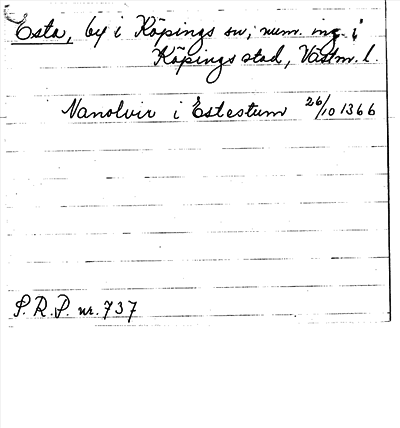 Esta, by i Köpings sn; num. ing. i
Köpings stad, Västm. l.
Nanolvir i Estestum 26/10 1366
S.R.P. nr. 737